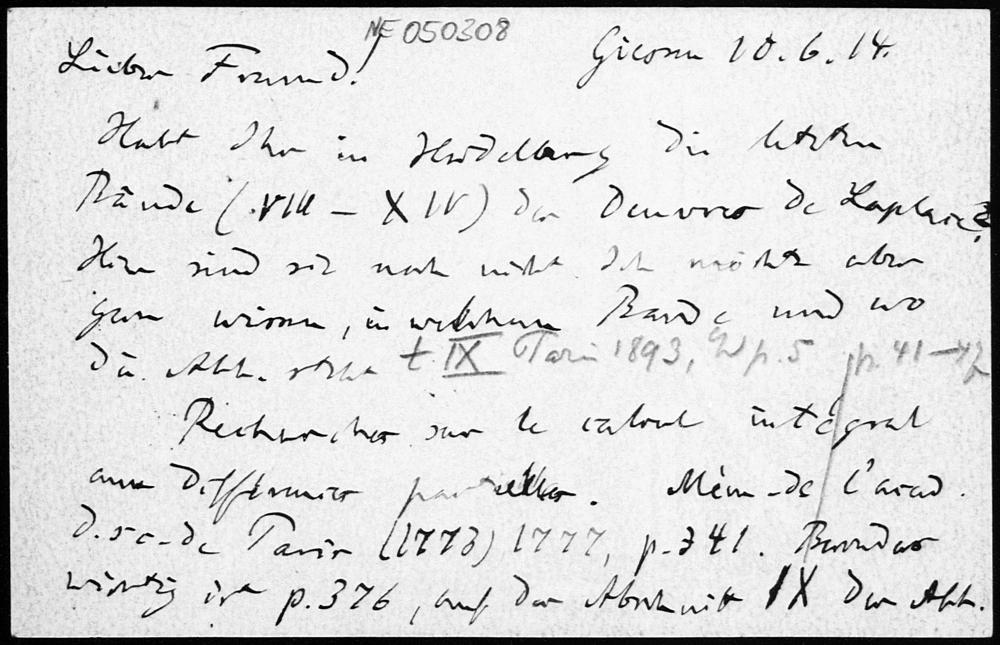 NE 050308
Lieber Freund! Giessen 10.6.14.
Habt Ihr in Heidelberg die letzten
Bände (VIII – XIV) der Oeuvres de Laplace?
Hier sind sie noch nicht. Ich möchte aber
gern wissen, in welchem Bande und wo
die Abh. steht t. IX Paris 1893, p. 5 p. 41–42
Recherches sur le calcul intégral
aux différences partielles. Mém. de l'acad.
d. sc. de Paris (1773) 1777, p. 341. Besonders
wichtig ist p. 376, auf der Abschnitt IX der Abh.